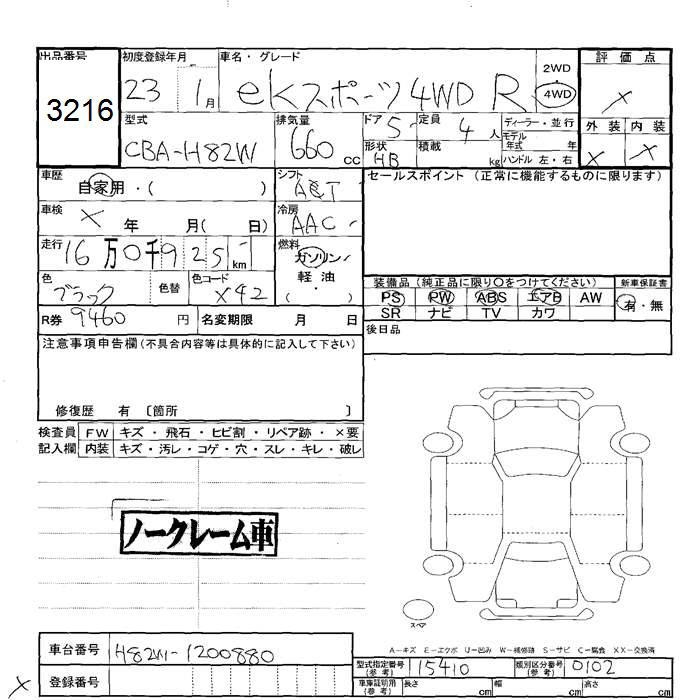 出品番号 初度登録年月 車名・グレード 2WD 4WD 評価点
3216 23 1月 eKスポーツ 4WD R ×
型式 排気量 ドア 5 定員 4人 ディーラー・並行 外装 内装
CBA-H82W 660cc 形状 HB 積載 kg モデル年式 年 ハンドル 左・右 × ×
車歴 自家用・( ) シフト AT セールスポイント (正常に機能するものに限ります)
車検 × 年 月( 日) 冷房 AAC
走行 16万0千925km 燃料 ガソリン・軽油・( )
色 ブラック 色替 色コード X42 装備品(純正品に限り○をつけてください) 新車保証書
PS PW ABS エアB AW 有・無
R券 9460円 名変期限 月 日 SR ナビ TV カワ
後日品
注意事項申告欄(不具合内容等は具体的に記入して下さい)
修復歴 有 〔箇所 〕
検査員 FW キズ・飛石・ヒビ割・リペア跡・×要
記入欄 内装 キズ・汚レ・コゲ・穴・スレ・キレ・破レ
ノークレーム車
スペア
A-キズ E-エクボ U-凹み W-補修跡 S-サビ C-腐食 XX-交換済
車台番号 H82W-1200880
型式指定番号(参考) 115410 類別区分番号(参考) 0102
× 登録番号 車庫証明用(参考) 長さ cm 幅 cm 高さ cm